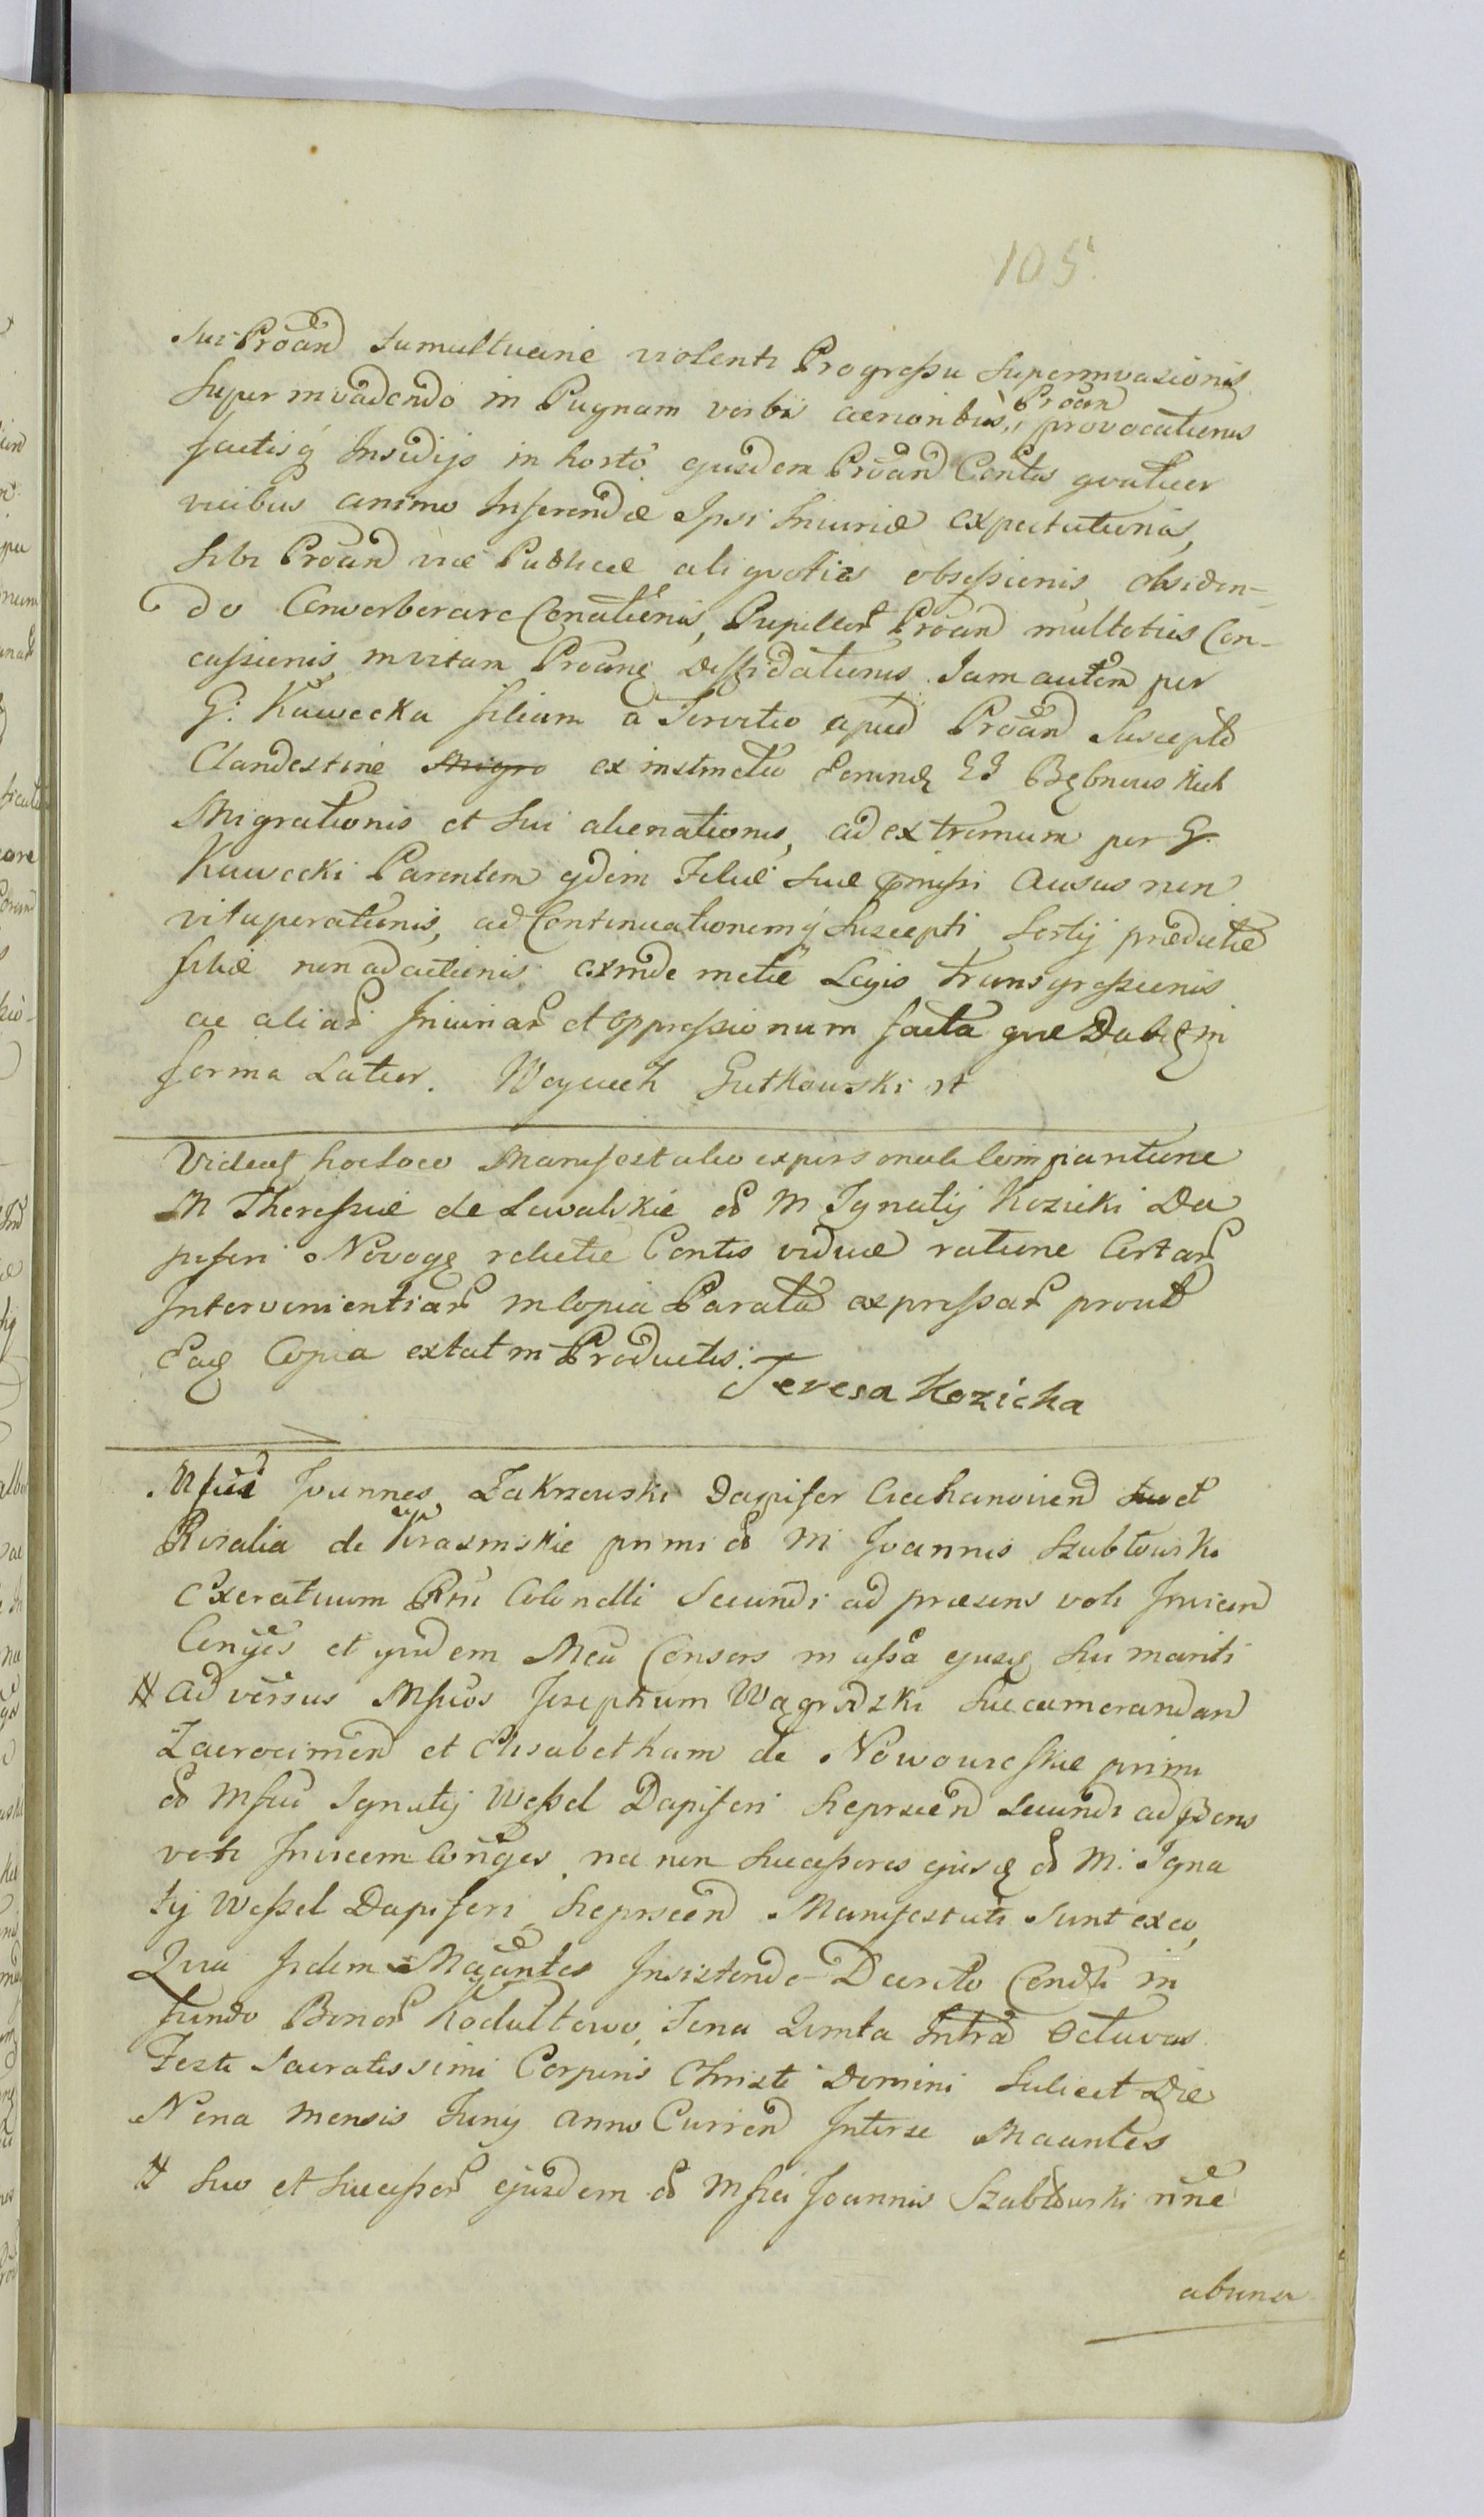 105.
sui Proand tumultuarie violenti Progreßu Superinvasionis
Super invadendo in Pugnam verbis acrioribus, Proan provocationis
factisq Insidijs in horto ejusdem Proand Contis quatuer
vicibus animo Inferendæ Ipsi Iniuriæ expectationis,
Sibi Proand viæ Publicæ aliquoties obseßionis, obsiden-
do Converberare Conationis, Pupillor Proand multoties Con-
cußionis invitam Proang diffidationis Jam autem per
G: Kawecka filiam a Servitio apud Proand Suscepto
Clandestine Migro ex instinctu eorund GG Bębnowskich
Migrationis et Sui alienationis, ad extremum per G.
Kawecki Parentem ejdem Filiæ Suæ comißi Ausus non
vituperationis, ad Continuationemq Suscepti Servitij prædictæ
filiæ non adactionis exinde metæ Legis transgreßionis
ac aliar Iniuriar et oppreßionum facta quæ Dabit in
forma Latior. Woyciech Gutkowski mp
Videat hocloco Manifestatio ex personali Comparitione
M Thereßiæ de Lewalskie od M Ignatij Kozicki Da
piferi Novog relictæ Contis viduæ ratione Certar
Intervenientiar in Copia Parata expreßar prout
Eaq Copia extat in Productis.
Teresa Kozicka
Mfici Joannes Zakrzewski Dapifer Ciechanoviend suo et
Rosalia de Krasinskie primi od M Joannis Szabłowski
Exercituum Colonelli Secundi ad præsens voti Invicem
Conjges et quidem Mca Consors in aßa ejusq Sui mariti
# adversus Mficos Josephum Wągrodzki Succamerandan
Zacrocimend et Elisabetham de Nowowieskie primi
od Mfici Ignatij Weßel Dapiferi Sieprscend Secundi ad pens
voti Invicem Conjges nec non Succeßores ejusq od M: Igna
tij Weßel Dapiferi Sieprscend Manifestati sunt ex eo,
Quia Iidem Maantes Insistendo Decreto Condti in
fundo Bonor Koduttowo, Feria Quinta Intra Octavas
Festi Sacratissimi Corporis Christi Domini Scilicet Die
Nona mensis Junij anno Currend Interse Maantes
# suo et Succeßor ejusdem od Mfici Joannis Szabłowski nne